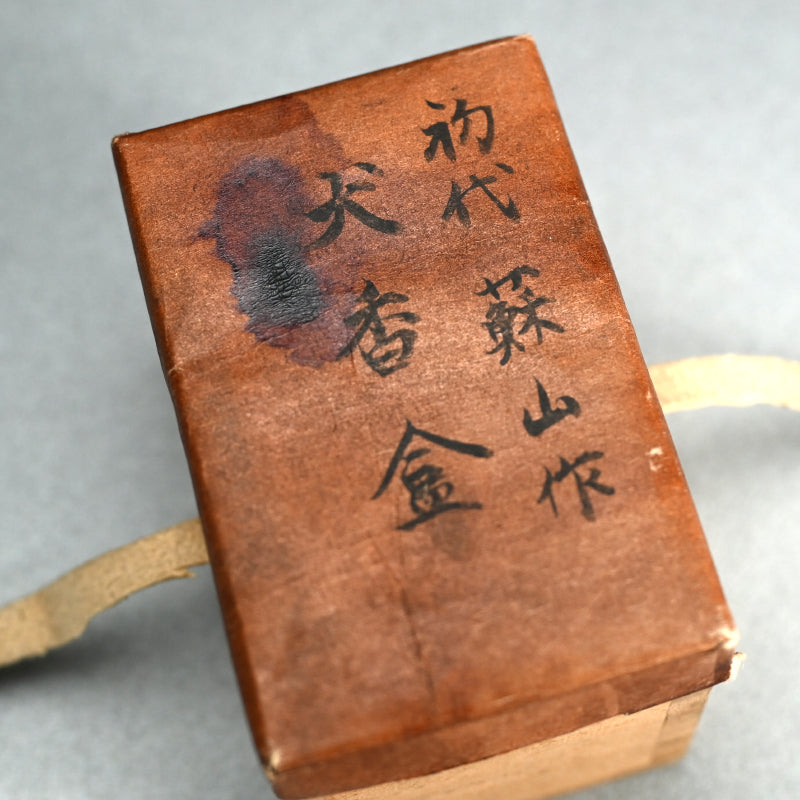 初代 蘇山作
犬香盒